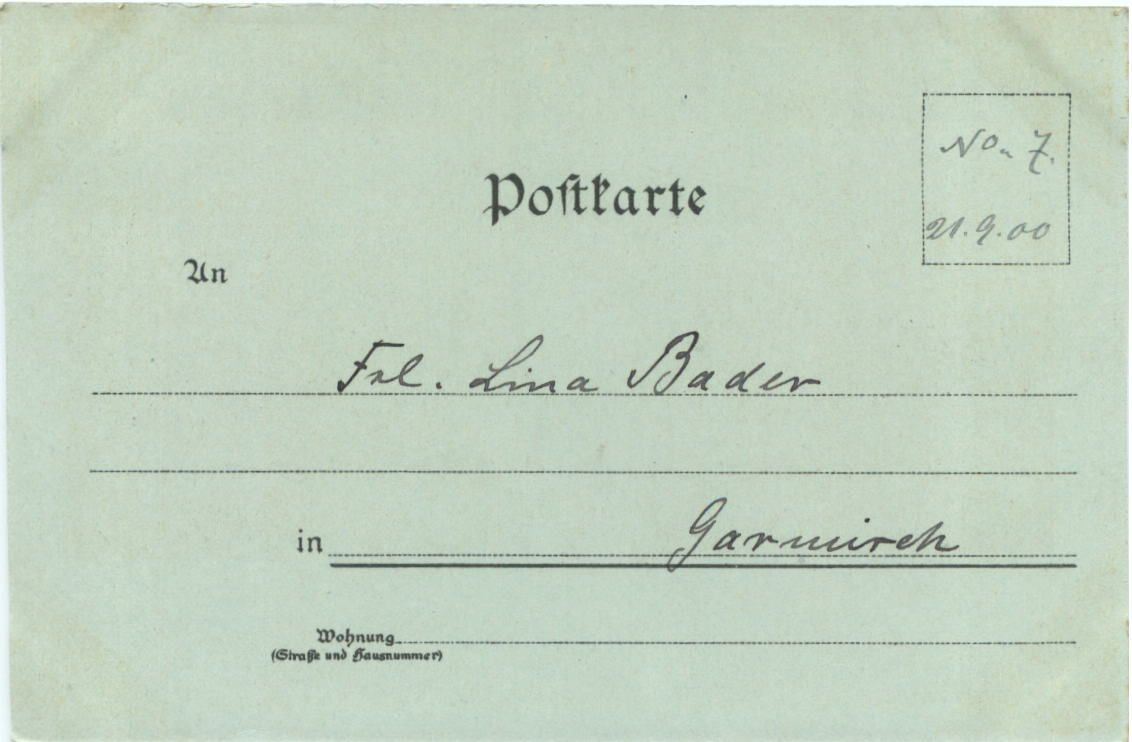 No. 7.
Postkarte
21.9.00
An
Frl. Lina Bader
in Garmisch
Wohnung
(Straße und Hausnummer)